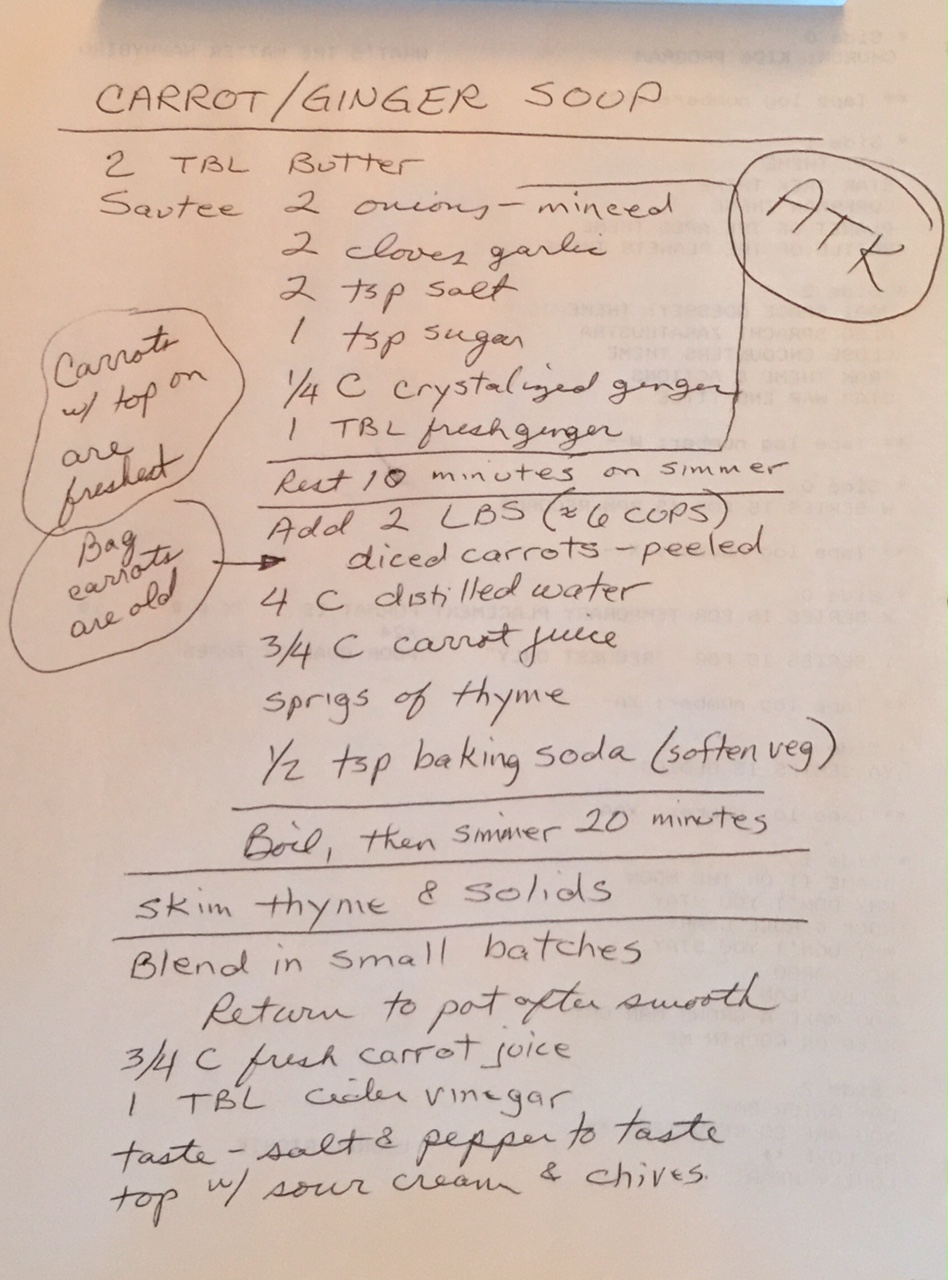 CARROT/GINGER SOUP
2 TBL Butter
Sautee 2 onions - minced
2 cloves garlic
2 tsp salt
1 tsp sugar
1/4 C crystalized ginger
1 TBL fresh ginger
ATK
Rest 10 minutes on simmer
Carrots
w/ top on
are
freshest
Add 2 LBS (≈ 6 CUPS)
diced carrots - peeled
Bag
carrots
are old
4 C distilled water
3/4 C carrot juice
sprigs of thyme
1/2 tsp baking soda (soften veg)
Boil, then simmer 20 minutes
skim thyme & solids
Blend in small batches
Return to pot after smooth
3/4 C fresh carrot juice
1 TBL cider vinegar
taste - salt & pepper to taste
top w/ sour cream & chives.